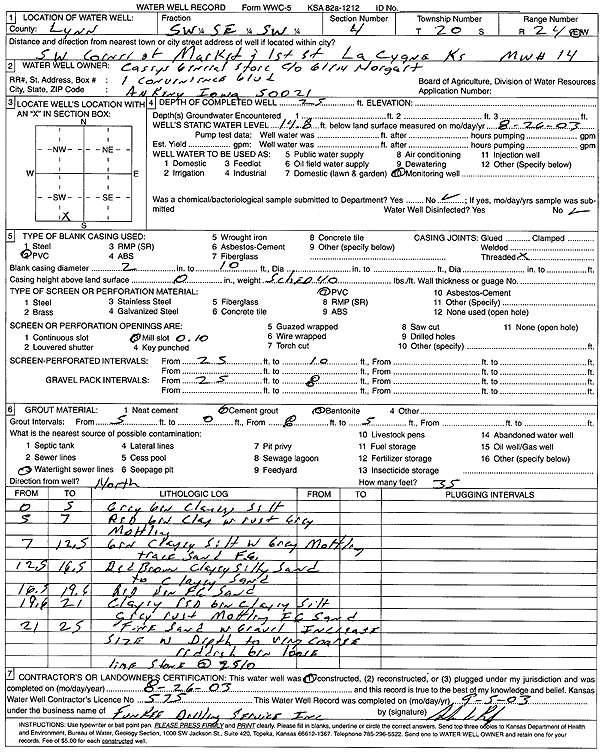 WATER WELL RECORD Form WWC-5 KSA 82a-1212 ID No.
1 LOCATION OF WATER WELL: Fraction Section Number Township Number Range Number
County: Lynn SW ¼ SE ¼ SW ¼ 4 T 20 S R 24 E/W
Distance and direction from nearest town or city street address of well if located within city?
SW corner of Market & 1st St La Cygne Ks MW# 14
2 WATER WELL OWNER: Caseys General Store c/o
RR#, St. Address, Box # : 1 Convenience Blvd Board of Agriculture, Division of Water Resources
City, State, ZIP Code : Ankeny Iowa 50021 Application Number:
3 LOCATE WELL'S LOCATION WITH AN "X" IN SECTION BOX:
N
NW NE
W E
SW SE
X
S
4 DEPTH OF COMPLETED WELL 25 ft. ELEVATION:
Depth(s) Groundwater Encountered 1 ft. 2 ft. 3 ft.
WELL'S STATIC WATER LEVEL 14.8 ft. below land surface measured on mo/day/yr 8-26-03
Pump test data: Well water was ft. after hours pumping gpm
Est. Yield gpm: Well water was ft. after hours pumping gpm
WELL WATER TO BE USED AS: 5 Public water supply 8 Air conditioning 11 Injection well
1 Domestic 3 Feedlot 6 Oil field water supply 9 Dewatering 12 Other (Specify below)
2 Irrigation 4 Industrial 7 Domestic (lawn & garden) 10 Monitoring well
Was a chemical/bacteriological sample submitted to Department? Yes No ✓; If yes, mo/day/yrs sample was submitted
Water Well Disinfected? Yes No ✓
5 TYPE OF BLANK CASING USED: 5 Wrought iron 8 Concrete tile CASING JOINTS: Glued Clamped
1 Steel 3 RMP (SR) 6 Asbestos-Cement 9 Other (specify below) Welded
2 PVC 4 ABS 7 Fiberglass Threaded X
Blank casing diameter 2 in. to 10 ft., Dia in. to ft., Dia in. to ft.
Casing height above land surface 0 in., weight SCHED 40 lbs./ft. Wall thickness or guage No.
TYPE OF SCREEN OR PERFORATION MATERIAL: 7 PVC 10 Asbestos-Cement
1 Steel 3 Stainless Steel 5 Fiberglass 8 RMP (SR) 11 Other (Specify)
2 Brass 4 Galvanized Steel 6 Concrete tile 9 ABS 12 None used (open hole)
SCREEN OR PERFORATION OPENINGS ARE: 5 Guazed wrapped 8 Saw cut 11 None (open hole)
1 Continuous slot 3 Mill slot 0.10 6 Wire wrapped 9 Drilled holes
2 Louvered shutter 4 Key punched 7 Torch cut 10 Other (specify) ft.
SCREEN-PERFORATED INTERVALS: From 25 ft. to 10 ft., From ft. to ft.
From ft. to ft., From ft. to ft.
GRAVEL PACK INTERVALS: From 25 ft. to 8 ft., From ft. to ft.
From ft. to ft., From ft. to ft.
6 GROUT MATERIAL: 1 Neat cement 2 Cement grout 3 Bentonite 4 Other
Grout Intervals: From 5 ft. to 0 ft., From 8 ft. to 5 ft., From ft. to ft.
What is the nearest source of possible contamination: 10 Livestock pens 14 Abandoned water well
1 Septic tank 4 Lateral lines 7 Pit privy 11 Fuel storage 15 Oil well/Gas well
2 Sewer lines 5 Cess pool 8 Sewage lagoon 12 Fertilizer storage 16 Other (specify below)
3 Watertight sewer lines 6 Seepage pit 9 Feedyard 13 Insecticide storage
Direction from well? North How many feet? 35
FROM TO LITHOLOGIC LOG FROM TO PLUGGING INTERVALS
0 5 Grey brn Clayey Silt
5 7 Red brn Clay w rust Grey
Mottling
7 12.5 brn Clayey Silt w Grey Mottling
trace Sand F.G.
12.5 16.5 Red Brown Clayey Silty Sand
to Clayey Sand
16.5 19.6 Red brn FG Sand
19.6 21 Clayey red brn Clayey Silt
Grey rust Mottling FG Sand
21 25 Fine Sand w Gravel Increase
Size w Depth to Very Coarse
reddish brn loose
lime stone @ 25.0
7 CONTRACTOR'S OR LANDOWNER'S CERTIFICATION: This water well was (1) constructed, (2) reconstructed, or (3) plugged under my jurisdiction and was
completed on (mo/day/year) 8-26-03 and this record is true to the best of my knowledge and belief. Kansas
Water Well Contractor's Licence No 575 This Water Well Record was completed on (mo/day/yr) 9-5-03
under the business name of Funkee Drilling Service Inc by (signature)
INSTRUCTIONS: Use typewriter or ball point pen. PLEASE PRESS FIRMLY and PRINT clearly. Please fill in blanks, underline or circle the correct answers. Send top three copies to Kansas Department of Health
and Environment, Bureau of Water, Geology Section, 1000 SW Jackson St., Suite 420, Topeka, Kansas 66612-1367. Telephone 785-296-5522. Send one to WATER WELL OWNER and retain one for your
records. Fee of $5.00 for each constructed well.